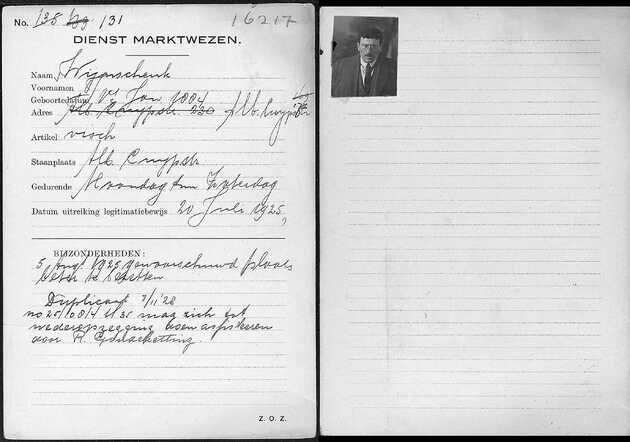 No. 138 139 131 16217
DIENST MARKTWEZEN.
Naam Wijnschenk
Voornamen
Geboortedatum Jan 1884
Adres Alb. Cuypstr. 230 Alb. Cuypstr
Artikel visch
Staanplaats Alb. Cuypstr
Gedurende Maandag t/m Zaterdag
Datum uitreiking legitimatiebewijs 20 Juli 1925,
BIJZONDERHEDEN:
5 Aug. 1925 gewaarschuwd plaats
te
Duplicaat 7/11 28
mag zich tot
wederopzegging doen assisteeren
door R.
Z. O. Z.